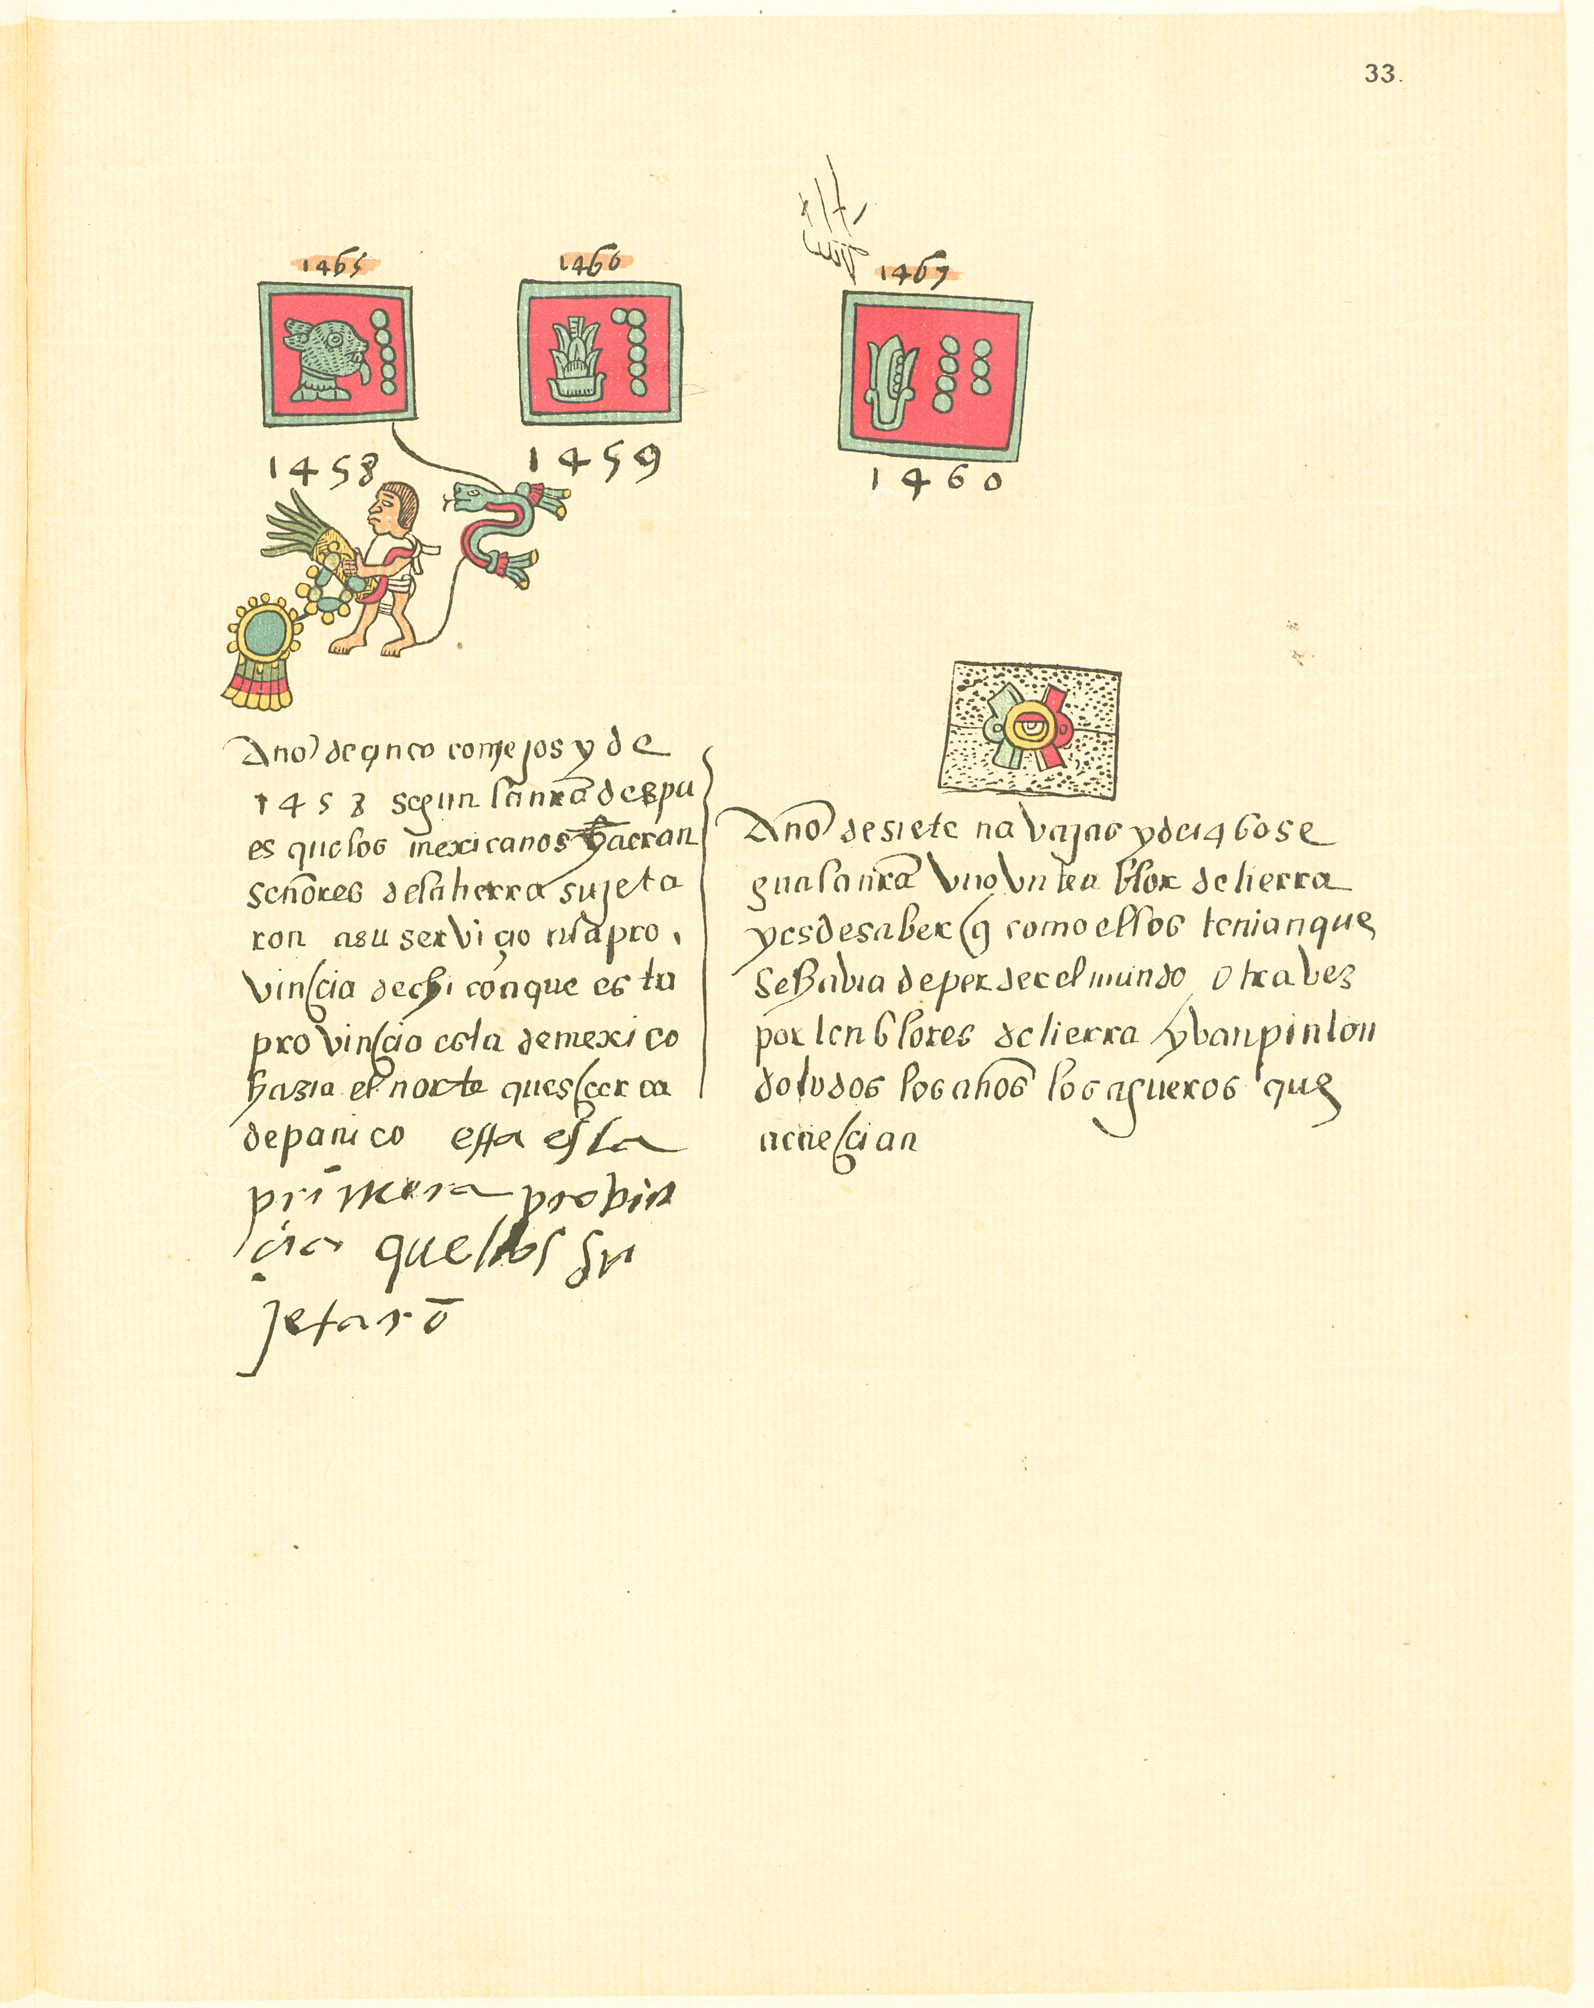 33.
1465
1466
1467
1458
1459
1460
Año de çinco conejos y de
1458 segun la nra despu
es que los mexicanos
señores de la tierra sujeta
ron a su serviçio a la pro
vinçia de que esta
provinçia esta de mexico
hazia el norte ques çerca
de panico esta es la
primera probin
cia que ellos su
jetarō
Año de siete navajas y de 1460 se
gun la nra uvo un tenblor de tierra
y es de saber q como ellos tenian que
se habia de perder el mundo otra vez
por tenblores de tierra yban pintan
do todos los años los agueros que
acaeçian